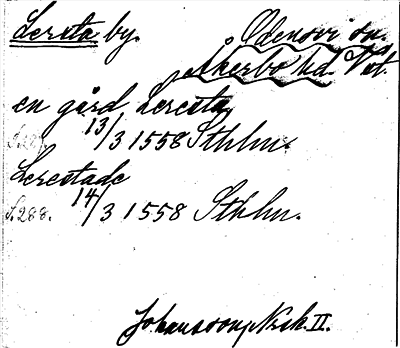 Lersta by. Odensvi sn.
Åkerbo hd. Vstm.
en gård Lersta
13/3 1558 Sthlm.
Lerestade
S. 288. 14/3 1558 Sthlm.
Johansson, Nsk. II.